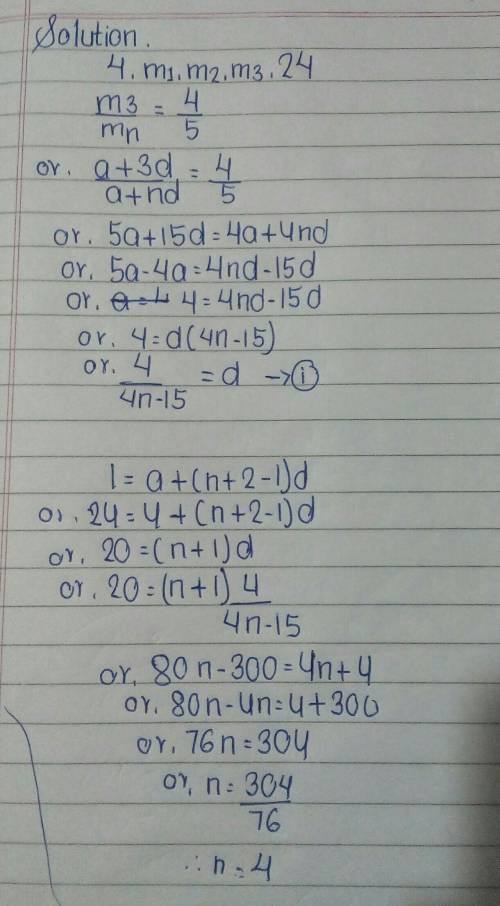 Solution.
4, m1, m2, m3, 24
m3/mn = 4/5
or, a+3d/a+nd = 4/5
or, 5a+15d=4a+4nd
or, 5a-4a=4nd-15d
or, a=4 4=4nd-15d
or, 4=d(4n-15)
or, 4/4n-15 = d → (i)
l = a+(n+2-1)d
or, 24=4+(n+2-1)d
or, 20=(n+1)d
or, 20=(n+1) 4/4n-15
or, 80n-300=4n+4
or, 80n-4n=4+300
or, 76n=304
or, n=304/76
∴ n=4